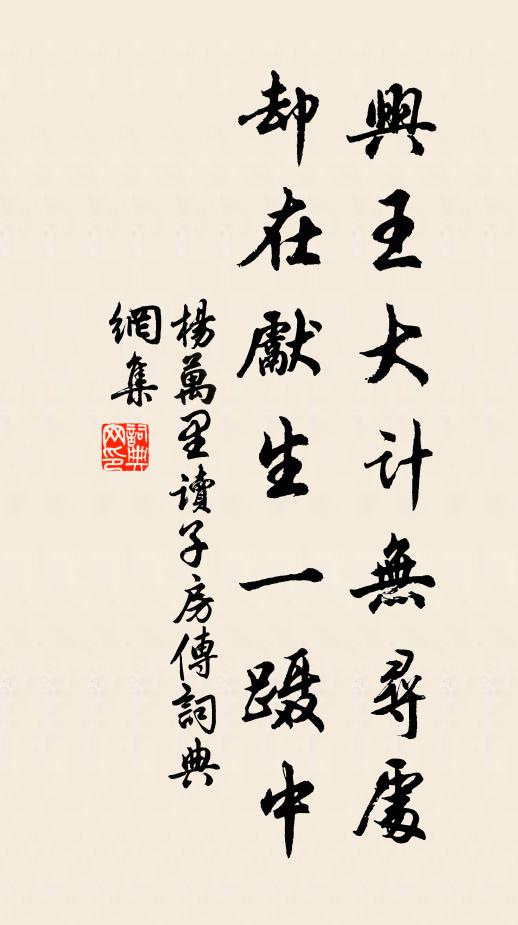 興王大计無尋處
却在獻生一蹑中
楊萬里讀子房傳詞典
網集
詞典
网印